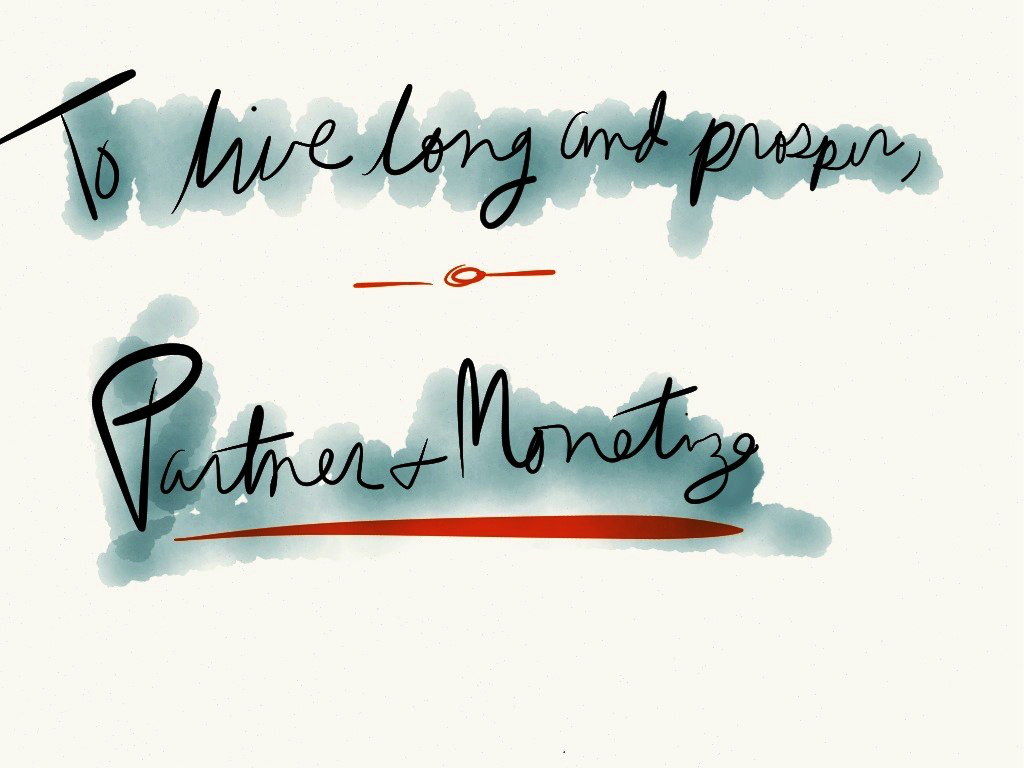 To live long and prosper,
Partner + Monetize